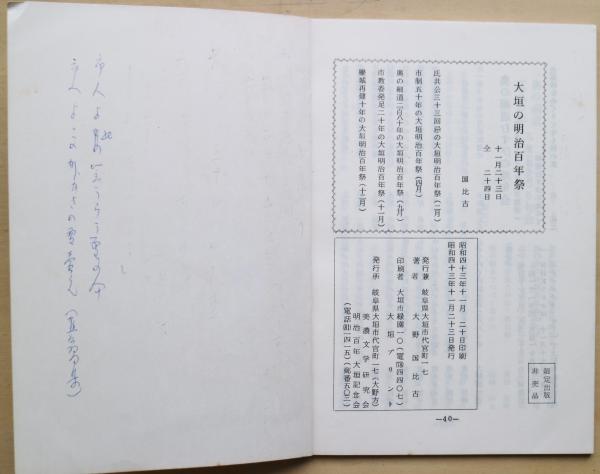 大垣の明治百年祭
十一月二十三日
仝 二十四日
国比古
氏共公三十三回忌の大垣明治百年祭(二月)
市制五十年の大垣明治百年祭(四月)
奥の細道二百八十年の大垣明治百年祭(九月)
市教委発足二十年の大垣明治百年祭(十一月)
城再建十年の大垣明治百年祭(十二月)
昭和四十三年十一月二十日印刷
昭和四十三年十一月二十三日発行
限定出版
非売品
発行兼 岐阜県大垣市代官町一七
著者 大野国比古
印刷者 大垣市緑園一〇(電⑱四四〇七)
大垣プリント
発行所 岐阜県大垣市代官町一七(大野方)
美濃文学研究会
明治百年大垣記念会
(電話⑱一四一五)(商番五〇三)
—40—
市人よ
市人よこの